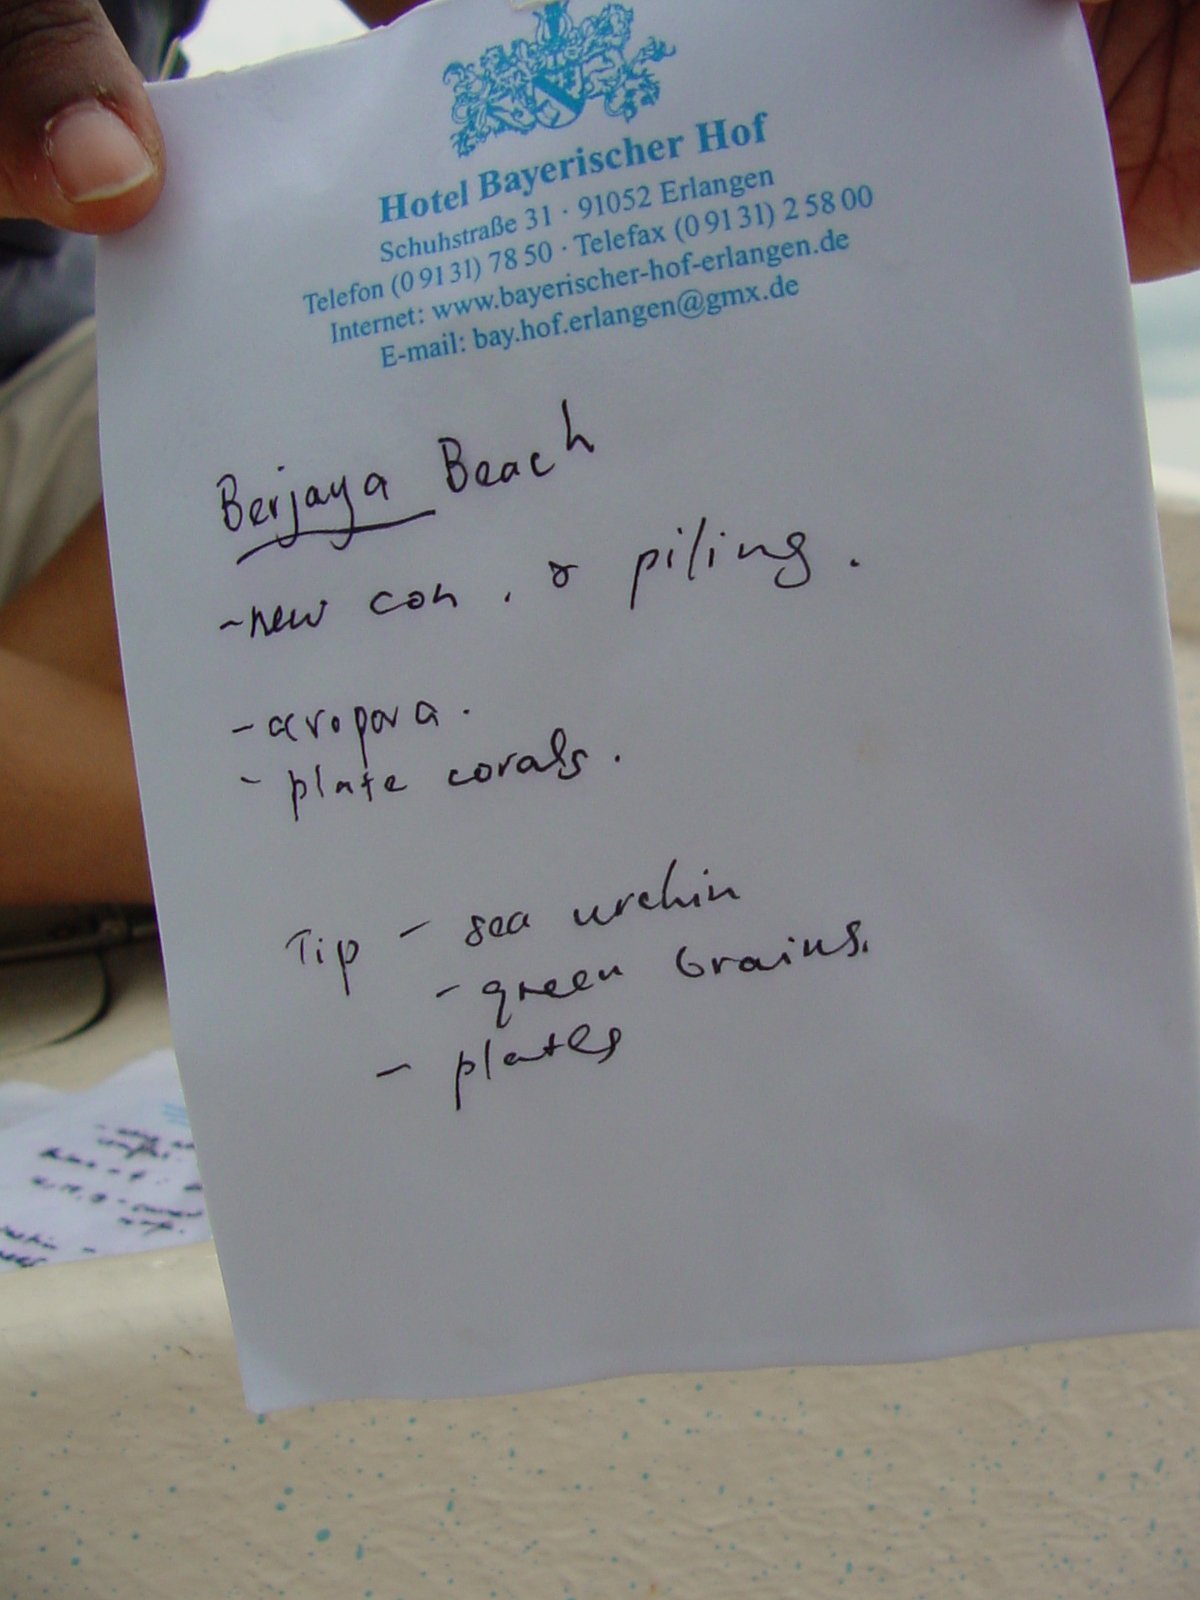 Hotel Bayerischer Hof
Schuhstraße 31 · 91052 Erlangen
Telefon (0 91 31) 78 50 · Telefax (0 91 31) 2 58 00
Internet: www.bayerischer-hof-erlangen.de
E-mail: bay.hof.erlangen@gmx.de
Berjaya Beach
- new con . & piling .
- acropora .
- plate corals .
Tip - sea urchin
- green brains.
- plates